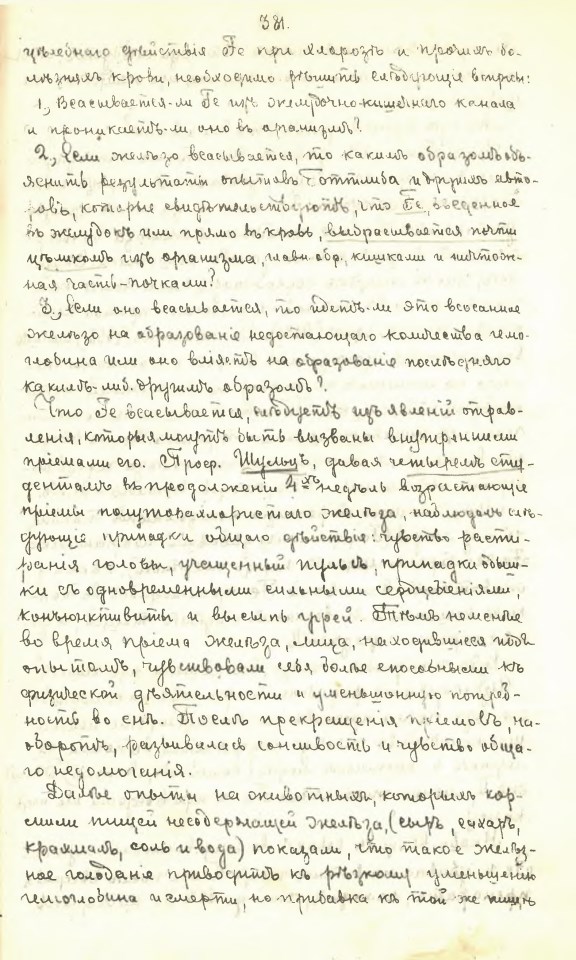 381.
цѣлебнаго дѣйствія Fe при хлорозѣ и прочихъ бо-
лѣзняхъ крови, необходимо рѣшить слѣдующіе вопросы:
1, Всасывается-ли Fe изъ желудочно-кишечнаго канала
и проникаетъ-ли оно въ организмъ?
2, Если желѣзо всасывается, то какимъ образомъ объ-
яснить результаты опытовъ Готтлиба и другихъ авто-
ровъ, которые свидѣтельствуютъ, что Fe, введенное
въ желудокъ или прямо въ кровь, выбрасывается почти
цѣликомъ изъ организма, главн. обр. кишками и ничтож-
ная часть-почками?
3, Если оно всасывается, то идетъ-ли это всосанное
желѣзо на образованіе недостающаго количества гемо-
глобина или оно вліяетъ на образованіе послѣдняго
какимъ-либ. другимъ образомъ?
Что Fe всасывается, слѣдуетъ изъ явленій отрав-
ленія, которыя могутъ быть вызваны внутренними
пріемами его. Проф. Шульцъ, давая четыремъ сту-
дентамъ въ продолженіи 4хъ недѣль возрастающіе
пріемы полуторахлористаго желѣза, наблюдалъ слѣ-
дующіе припадки общаго дѣйствія: чувство распи-
ранія головы, учащенный пульсъ, припадки одыш-
ки съ одновременными сильными сердцебіеніями,
конъюнктивиты и высыпь угрей. Тѣмъ неменѣе
во время пріема желѣза, лица, находившіеся подъ
опытомъ, чувствовали себя болѣе способными къ
физической дѣятельности и уменьшонную потреб-
ность во снѣ. Послѣ прекращенія пріемовъ, на-
оборотъ, развивилась сонливость и чувство обща-
го недомоганія.
Далѣе опыты на животныхъ, которыхъ кор-
мили пищей несодержащей желѣза, (сыръ, сахаръ,
крахмалъ, соль и вода) показали, что такое желѣз-
ное голоданіе приводитъ къ рѣзкому уменьшенію
гемоглобина и смерти, но прибавка къ той же пищѣ